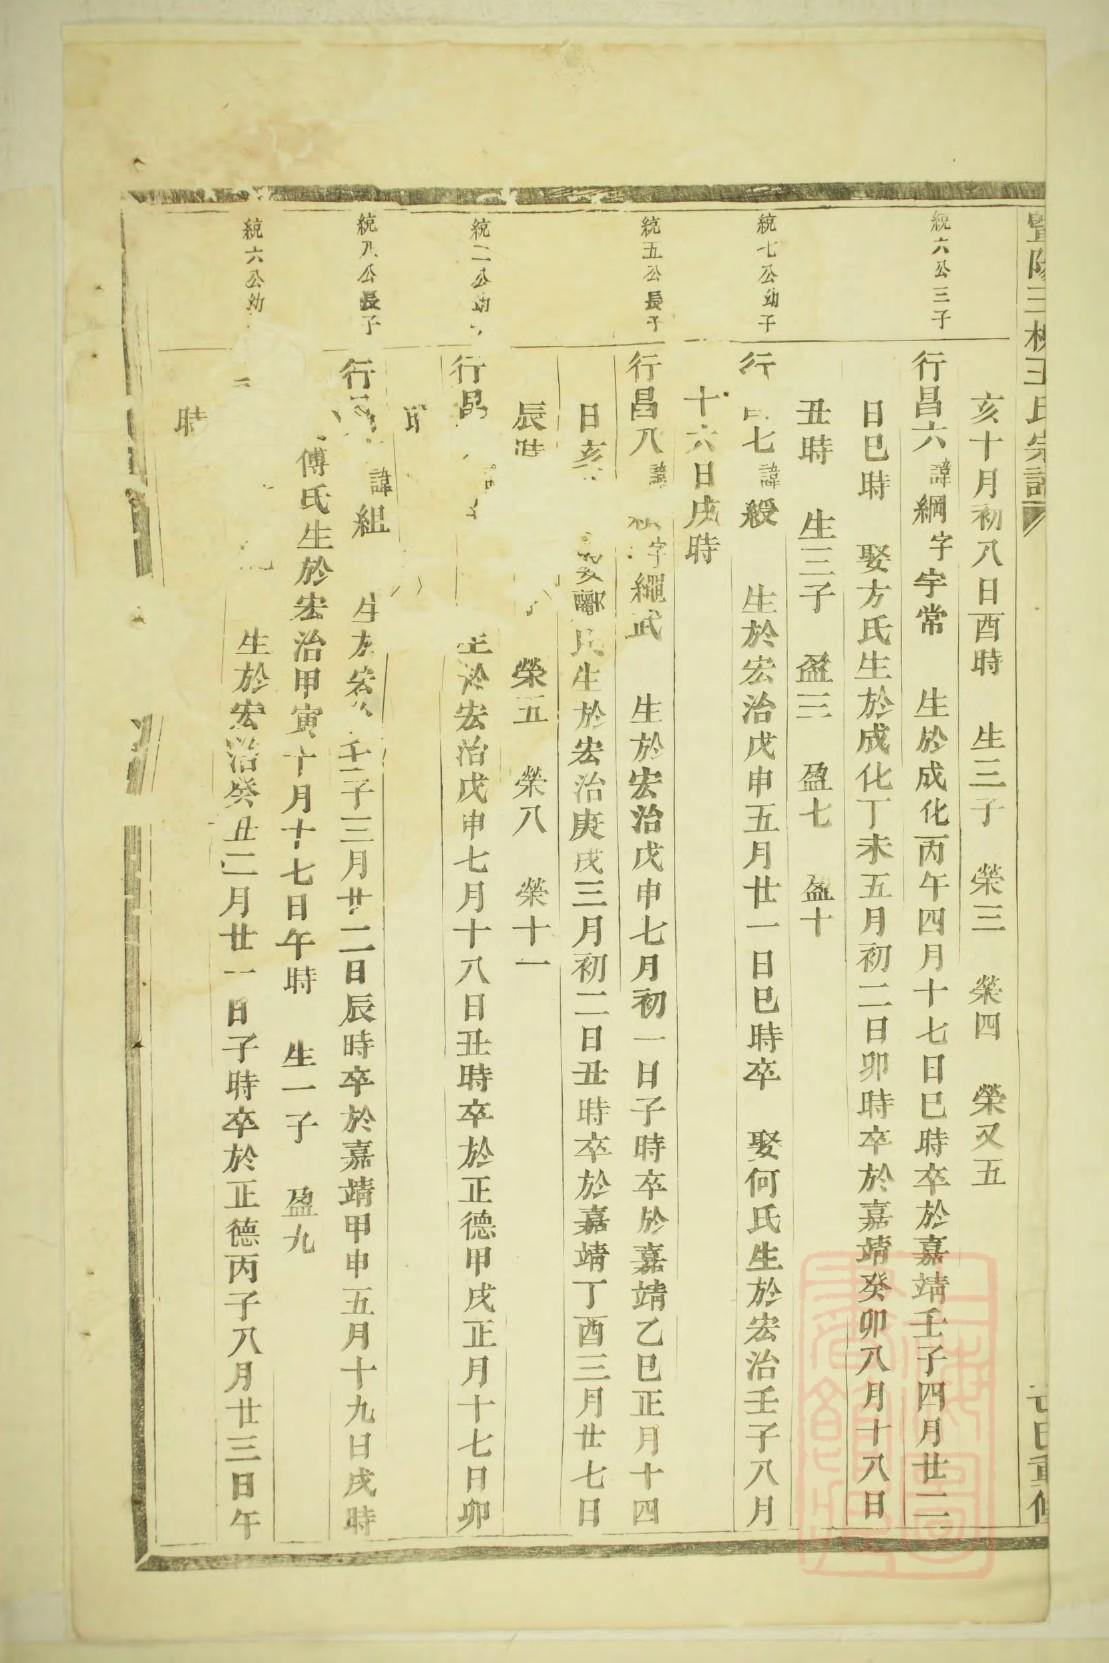 暨陽三桃王氏宗譜
民國重修
亥十月初八日酉時 生三子 榮三 榮四 榮又五
統六公三子
行昌六諱綱字宇常 生於成化丙午四月十七日巳時卒於嘉靖壬子四月廿二
日巳時 娶方氏生於成化丁未五月初二日卯時卒於嘉靖癸卯八月十八日
丑時 生三子 盈三 盈七 盈十
統七公幼子
行 七諱綬 生於宏治戊申五月廿一日巳時卒 娶何氏生於宏治壬子八月
十六日戌時
統五公長子
行昌八諱 字繩武 生於宏治戊申七月初一日子時卒於嘉靖乙巳正月十四
日亥 娶酈氏生於宏治庚戌三月初二日丑時卒於嘉靖丁酉三月廿七日
辰時 榮五 榮八 榮十一
統二公幼
行昌 生於宏治戊申七月十八日丑時卒於正德甲戌正月十七日卯
統八公長子
行 諱組 生於宏 壬子三月廿二日辰時卒於嘉靖甲申五月十九日戌時
傅氏生於宏治甲寅十月十七日午時 生一子 盈九
統六公幼
生於宏治癸丑二月廿一日子時卒於正德丙子八月廿三日午
時